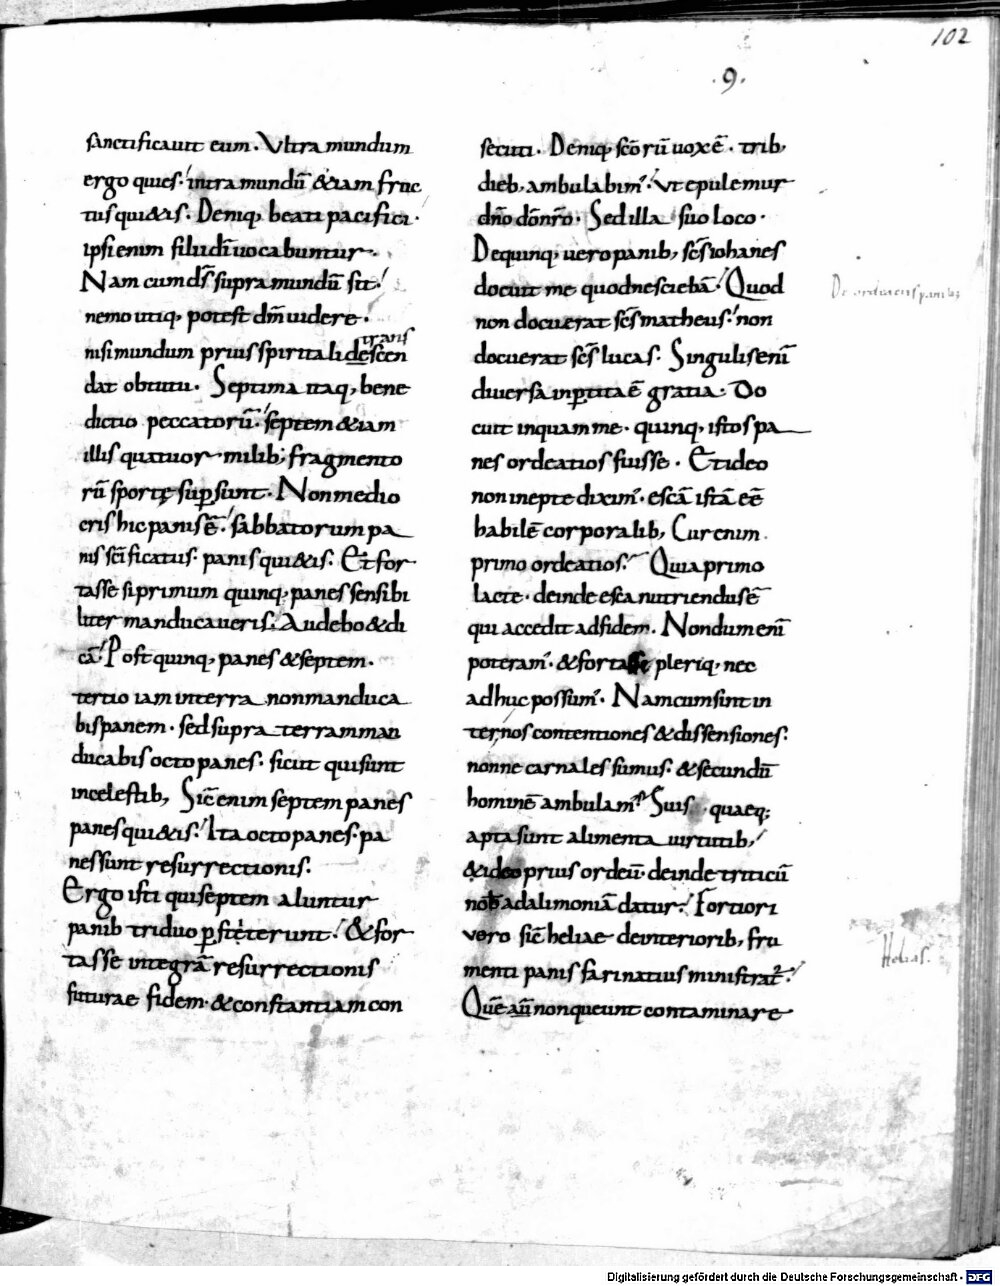 102
.9.
sanctificauit eum. Vltra mundum
ergo quies. intra mundū & iam fruc
tus qui&is. Deniq; beati pacifici.
ipsi enim filii dī uocabuntur.
Nam cum ds̄ supra mundū sit.
nemo utiq; potest dm̄ uidere.
trans
nisi mundum prius spiritali descen
dat obtutu. Septima itaq; bene
dictio peccatorū. septem & iam
illis quatuor milib; fragmento
rū sportę supersunt. Non medio
cris hic panis ē. sabbatorum pa
nis sc̄ificatus. panis qui&is. Et for
tasse si primum quinq; panes sensibi
liter manducaueris. Audebo & di
cā. Post quinq; panes & septem.
tertio iam in terra non manduca
bis panem. sed supra terram man
ducabis octo panes. sicut qui sunt
in celestib; Sic̄ enim septem panes
panes qui&is. Ita octo panes. pa
nes sunt resurrectionis.
Ergo isti qui septem aluntur
panib triduo perstiterunt. & for
tasse integrā resurrectionis
futurae fidem. & constantiam con
secuti. Deniq; scōrū uox ē. trib;
dieb; ambulabim'. Vt epulemur
dn̄o dō nr̄o. Sed illa suo loco.
De quinq; uero panib; sc̄s iohanes
docuit me quod nesciebā. Quod
non docuerat sc̄s matheus. non
docuerat sc̄s lucas. Singulis enī
diuersa inpertita ē gratia. Do
cuit inquam me. quinq; istos pa
nes ordeatios fuisse. Et ideo
non inepte dixim'. escā istā eē
habilē corporalib; Cur enim
primo ordeatios. Quia primo
lacte. deinde esca nutriendus ē
qui accedit ad fidem. Nondum enī
poteram'. & fortasse pleriq; nec
adhuc possum'. Nam cum sint in
ter nos contentiones & dissensiones.
nonne carnales sumus. & secundū
hominē ambulam'. Suis quaeq;
apta sunt alimenta uirtutib;
& ideo prius ordeū. deinde triticū
nob ad alimoniā datur. Fortiori
vero sic̄ heliae de interiorib; fru
menti panis farinatius ministrat'.
Quē aū non queunt contaminare
De ordeaceis panibus
Helias.
Digitalisierung gefördert durch die Deutsche Forschungsgemeinschaft - DFG